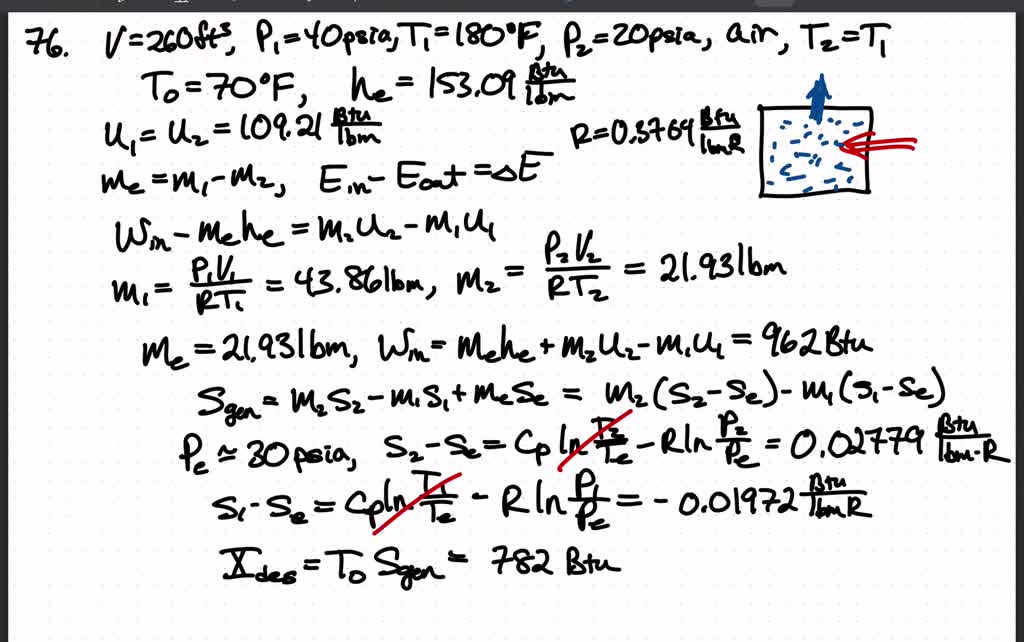 76. V=260ft³, P₁=40psia, T₁=180°F, P₂=20psia, air, T₂=T₁
T₀=70°F, hₑ=153.09 Btu/lbm
U₁=U₂=109.21 Btu/lbm R=0.3764 Btu/lbmR
mₑ=m₁-m₂, Ein-Eout=ΔE
Win-mₑhₑ=m₂U₂-m₁U₁
m₁=P₁V₁/RT₁=43.86lbm, m₂=P₂V₂/RT₂=21.93lbm
mₑ=21.93lbm, Win=mₑhₑ+m₂U₂-m₁U₁=962Btu
Sgen=m₂S₂-m₁S₁+mₑSₑ=m₂(S₂-Sₑ)-m₁(S₁-Sₑ)
Pₑ≃30psia, S₂-Sₑ=Cp ln T₂/Tₑ-R ln P₂/Pₑ=0.02779 Btu/lbm-R
S₁-Sₑ=Cp ln T₁/Tₑ-R ln P₁/Pₑ=-0.01972 Btu/lbmR
Xdes=T₀Sgen=782 Btu